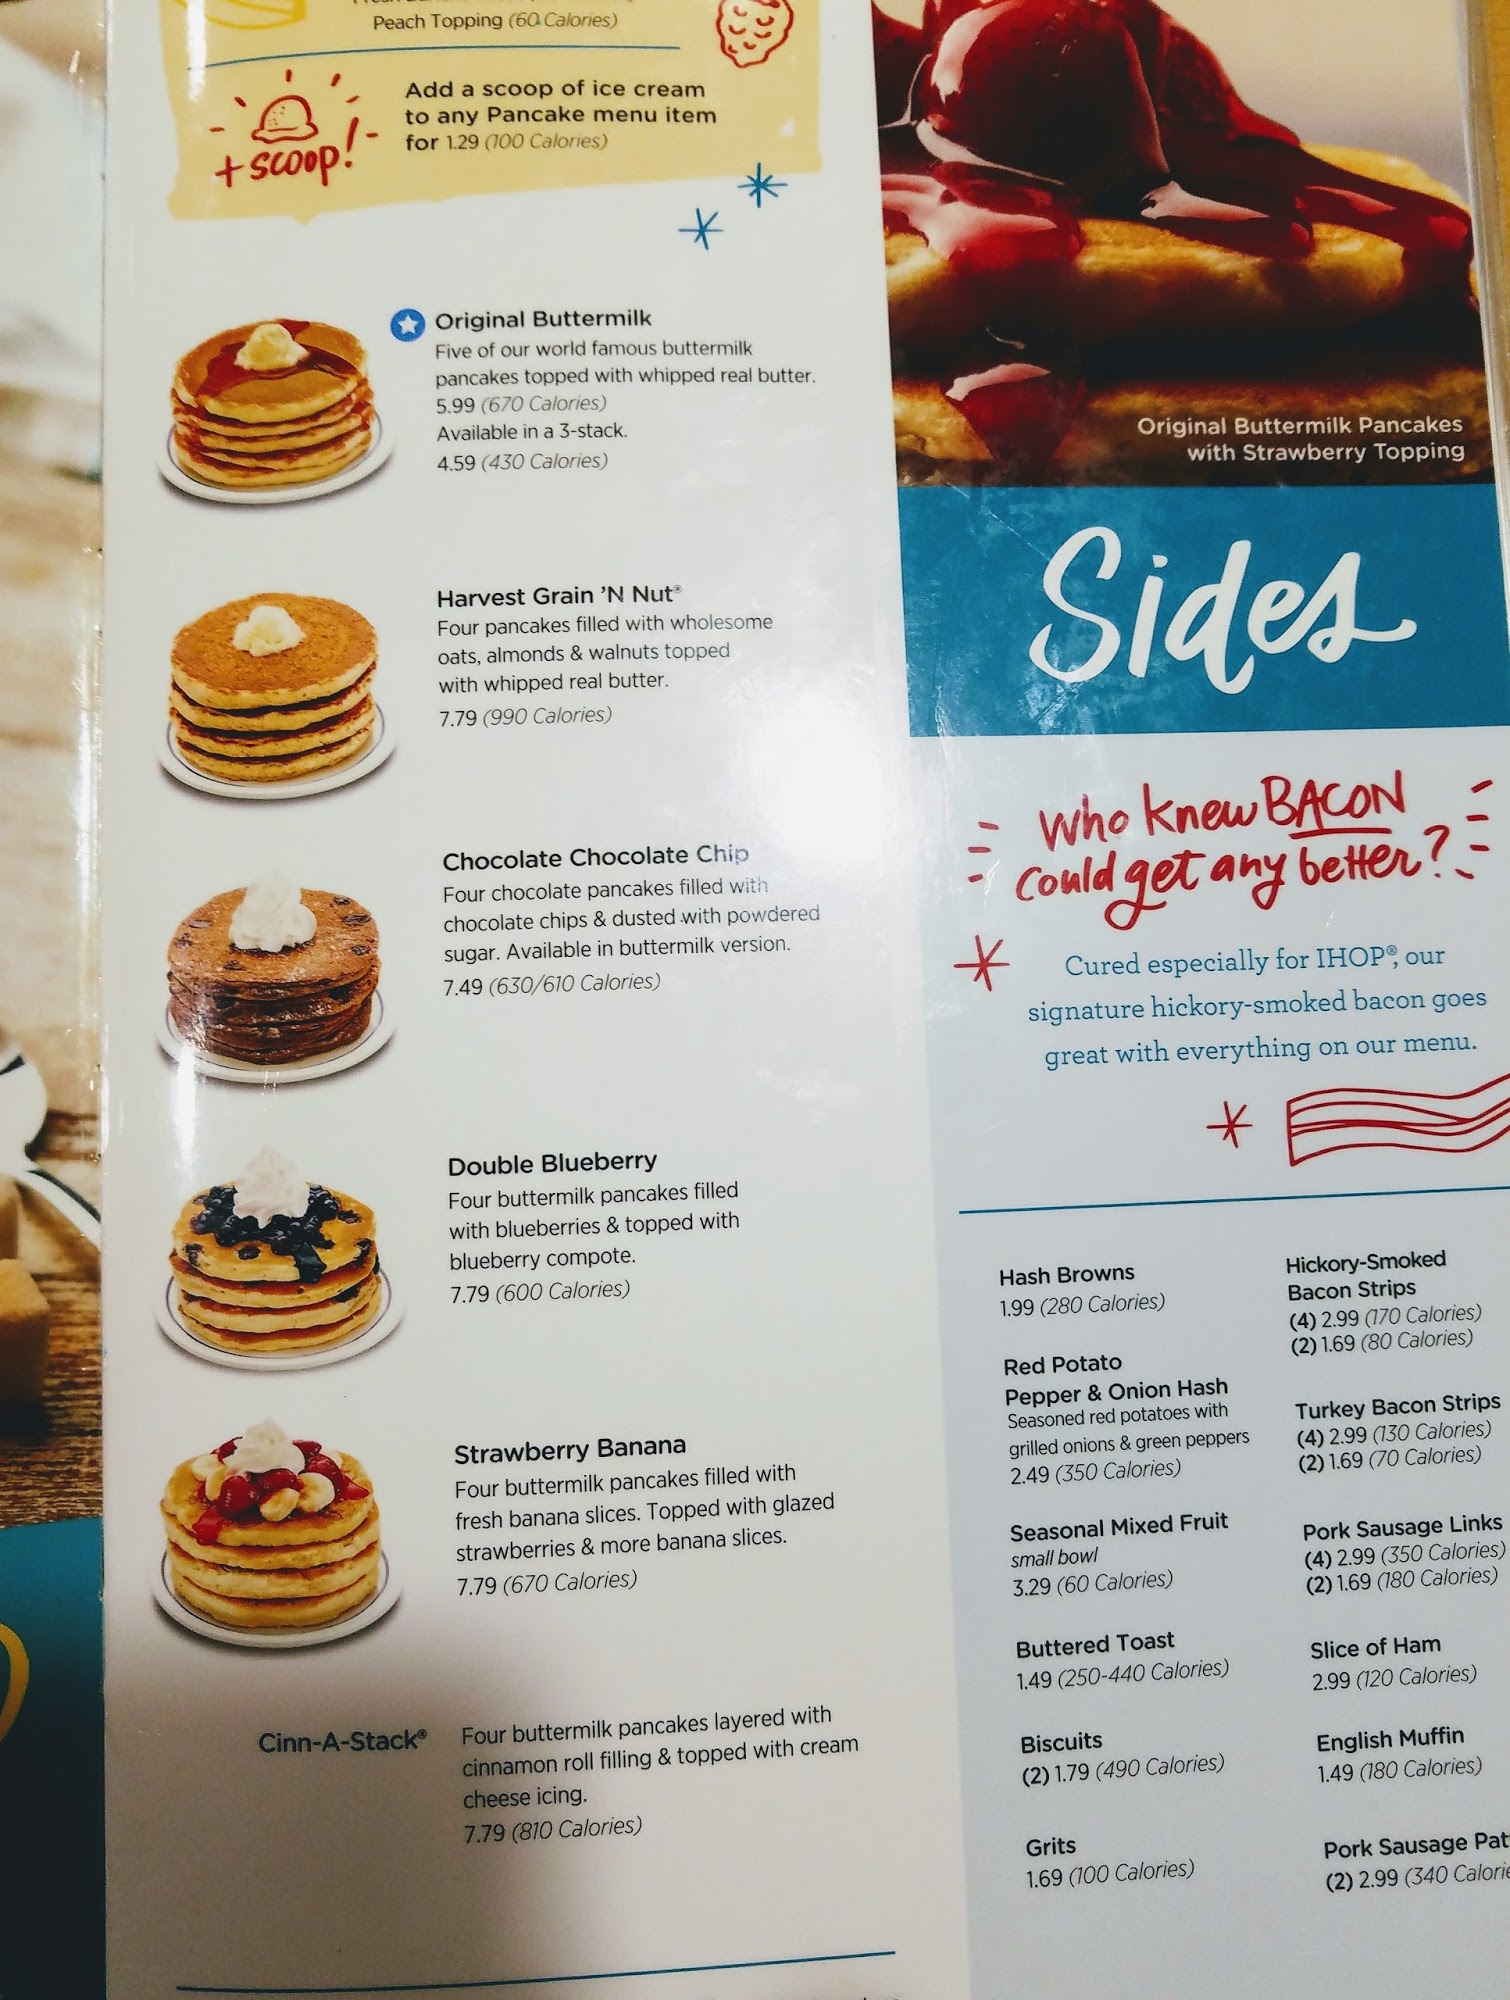 Peach Topping (60 Calories)
Add a scoop of ice cream
to any Pancake menu item
for 1.29 (100 Calories)
+ scoop!
Original Buttermilk
Five of our world famous buttermilk
pancakes topped with whipped real butter.
5.99 (670 Calories)
Available in a 3-stack.
4.59 (430 Calories)
Harvest Grain 'N Nut®
Four pancakes filled with wholesome
oats, almonds & walnuts topped
with whipped real butter.
7.79 (990 Calories)
Chocolate Chocolate Chip
Four chocolate pancakes filled with
chocolate chips & dusted with powdered
sugar. Available in buttermilk version.
7.49 (630/610 Calories)
Double Blueberry
Four buttermilk pancakes filled
with blueberries & topped with
blueberry compote.
7.79 (600 Calories)
Strawberry Banana
Four buttermilk pancakes filled with
fresh banana slices. Topped with glazed
strawberries & more banana slices.
7.79 (670 Calories)
Cinn-A-Stack®
Four buttermilk pancakes layered with
cinnamon roll filling & topped with cream
cheese icing.
7.79 (810 Calories)
Original Buttermilk Pancakes
with Strawberry Topping
Sides
Who knew BACON
could get any better?
Cured especially for IHOP®, our
signature hickory-smoked bacon goes
great with everything on our menu.
Hash Browns
1.99 (280 Calories)
Red Potato
Pepper & Onion Hash
Seasoned red potatoes with
grilled onions & green peppers
2.49 (350 Calories)
Seasonal Mixed Fruit
small bowl
3.29 (60 Calories)
Buttered Toast
1.49 (250-440 Calories)
Biscuits
(2) 1.79 (490 Calories)
Grits
1.69 (100 Calories)
Hickory-Smoked
Bacon Strips
(4) 2.99 (170 Calories)
(2) 1.69 (80 Calories)
Turkey Bacon Strips
(4) 2.99 (130 Calories)
(2) 1.69 (70 Calories)
Pork Sausage Links
(4) 2.99 (350 Calories)
(2) 1.69 (180 Calories)
Slice of Ham
2.99 (120 Calories)
English Muffin
1.49 (180 Calories)
Pork Sausage Pat
(2) 2.99 (340 Calorie